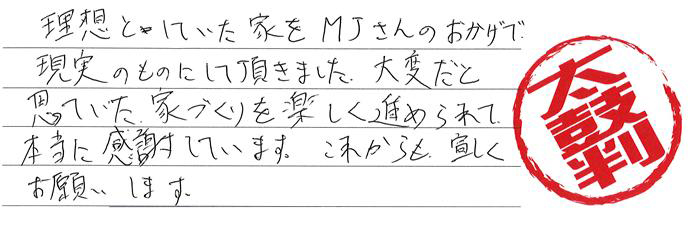 理想としていた家をMJさんのおかげで
現実のものにして頂きました。大変だと
思っていた家づくりを楽しく進められて
本当に感謝しています。これからも宜しく
お願いします。
太鼓判